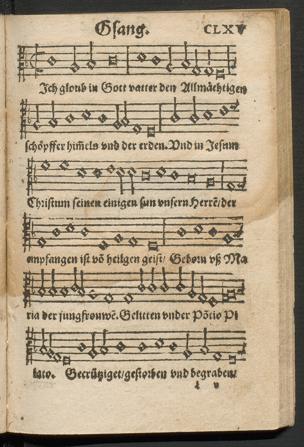 Gsang. CLXV
Jch gloub in Gott vatter den Allmächtigen
schöpffer him̃els vnd der erden. Vnd in Jesum
Christum seinen einigen sun vnsern Herrẽ/ der
empfangen ist võ heilgen geist/ Geborn vß Ma
ria der jungfrouwẽ. Gelitten vnder Põtio Pi
lato. Gecrütziget/gestorben vnd begraben/